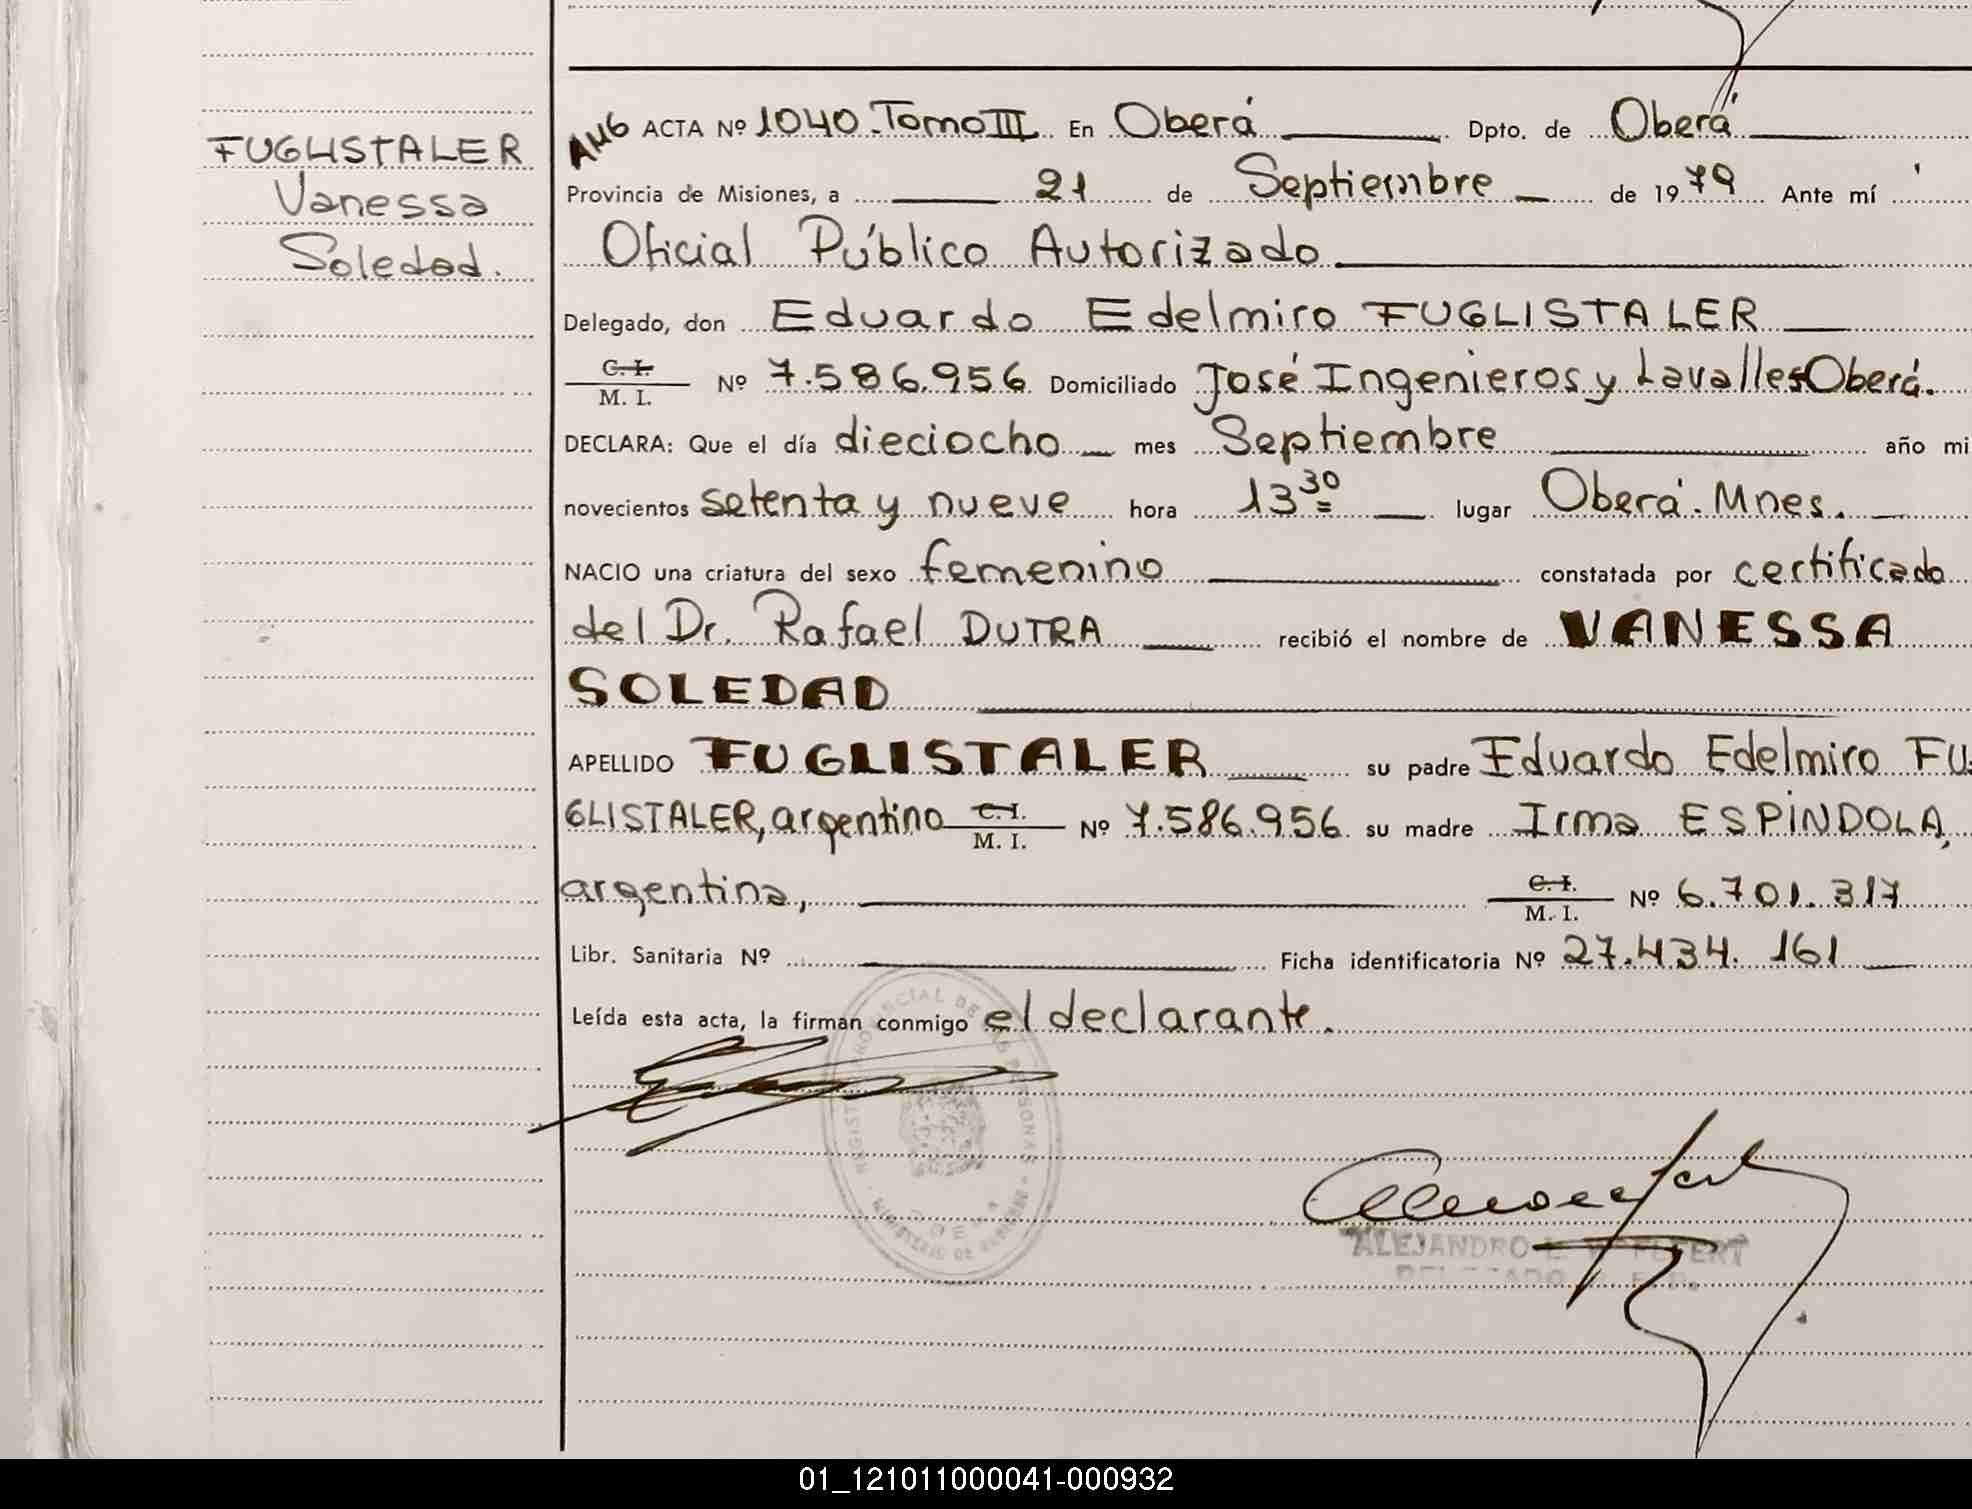 FUGLISTALER
Vanessa
Soledad.
ACTA Nº 1040. Tomo III En Oberá Dpto. de Oberá
Provincia de Misiones, a 21 de Septiembre de 1979 Ante mí
Oficial Público Autorizado
Delegado, don Eduardo Edelmiro FUGLISTALER
C. I.
M. I. Nº 7.586.956 Domiciliado José Ingenieros y Lavalles Oberá.
DECLARA: Que el día dieciocho mes Septiembre año mi
novecientos setenta y nueve hora 13 30 lugar Oberá. Mnes.
NACIO una criatura del sexo femenino constatada por certificado
del Dr. Rafael DUTRA recibió el nombre de VANESSA
SOLEDAD
APELLIDO FUGLISTALER su padre Eduardo Edelmiro FU-
GLISTALER, argentino C. I. M. I. Nº 7.586.956 su madre Irma ESPÍNDOLA,
argentina, C. I. M. I. Nº 6.701.317
Libr. Sanitaria Nº Ficha identificatoria Nº 27.434.161
Leída esta acta, la firman conmigo el declarante.
REGISTRO PROVINCIAL DE LAS PERSONAS
MINISTERIO DE GOBIERNO
ALEJANDRO
01_121011000041-000932